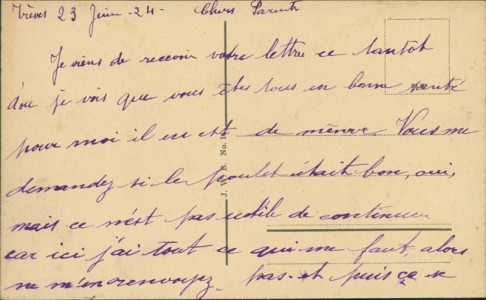 Trèves 23 Juin - 24 - Chers Parents
Je viens de recevoir votre lettre ce tantot
d'ou je vois que vous êtes tous en bonne santé
pour moi il en est de même Vous me
demandez si le poulet était bon, oui,
mais ce n'est pas utile de continuer
car ici j'ai tout ce qui me faut, alors
ne m'en renvoyez pas et puis ça se
J. W. B. No.